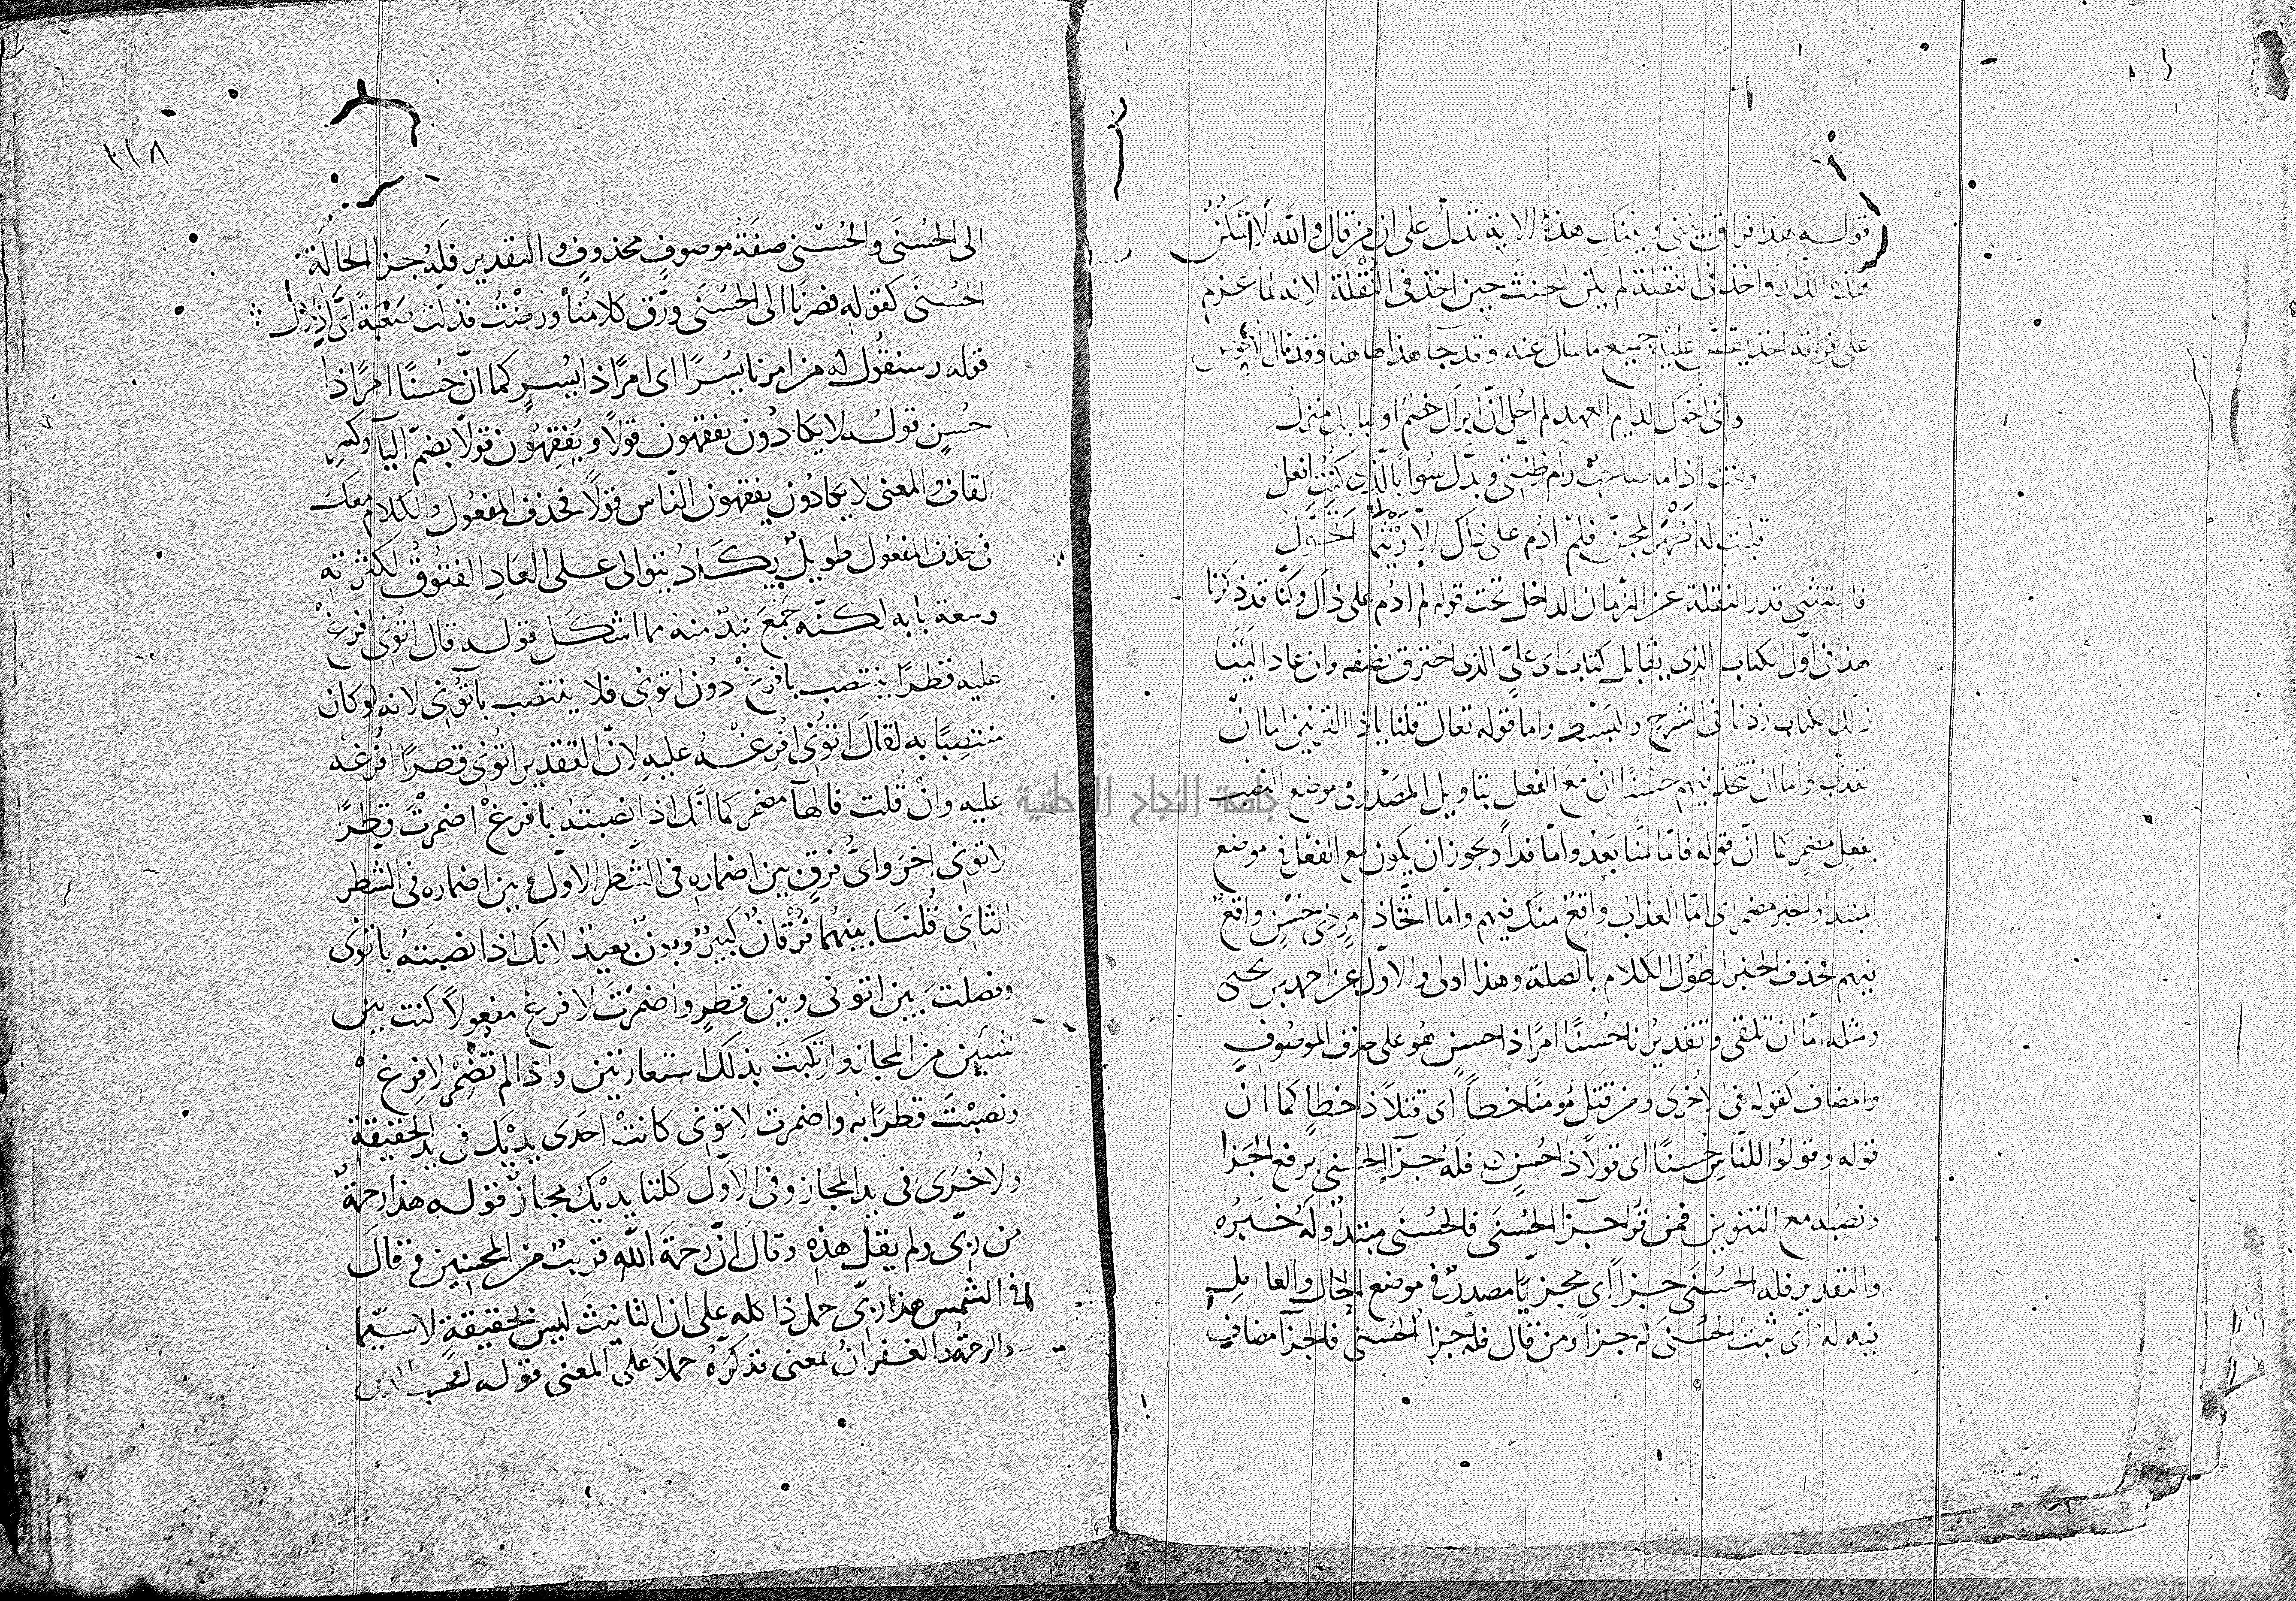 قوله هذا فراق بيني وبينك هذه الآية تدل على ان من قال والله لا اسكن
هذه الدار واخذ في النقلة لم يكن الحنث حين اخذ في النقلة لانه لما عزم
على فراقه اخذ يقص عليه جميع ما سال عنه وقد جآ هذا هاهنا وقد قال
واني اخوك الدايم العهد لم احل ان ابزاك خصم او نبا بك منزل
وكنت اذا ما صاحب رام ظنتي وبدل سوا بالذي كنت افعل
قلبت له ظهر المجن فلم ادم على ذاك الا ريثما اتحول
فاستثنى قدر النقلة عن الزمان الداخل تحت قوله لم ادم على ذاك وكنا قد ذكرنا
هذا في اول الكتاب الذي يقابل كتاب ابي علي الذي احترق نصفه وان عاد الينا
ذلك الكتاب زدنا في الشرح والبسط واما قوله تعالى قلنا ياذا القرنين اما ان
تعذب واما ان تتخذ فيهم حسنا ان مع الفعل بتاويل المصدر في موضع النصب
بفعل مضمر كما ان قوله فاما منا بعد واما فدآ ويجوز ان يكون مع الفعل في موضع
المبتدا والخبر مضمر اي اما العذاب واقع منك فيهم واما اتخاذ امر ذي حسن واقع
فيهم فحذف الخبر لطول الكلام بالصلة وهذا اولى والاول عن احمد بن يحيى
ومثله اما ان تلقي وتقديرنا حسنا امرا ذا حسن هو على حذف الموصوف
والمضاف كقوله في الاخرى ومن قتل مومنا خطأ اي قتلا ذا خطا كما ان
قوله وقولوا للناس حسنا اي قولا ذا حسن فله جزآ الحسنى برفع الجزا
ونصبه مع التنوين فمن قرا جزآ الحسنى فالحسنى مبتدا وله خبره
والتقدير فله الحسنى جزاً اي مجزيا مصدر في موضع الحال والعامل
فيه له اي ثبت الحسنى له جزاً ومن قال فله جزا الحسنى فالجزآ مضاف
٣١٨
الى الحسنى والحسنى صفة موصوف محذوف والتقدير فله جزا الحالة
الحسنى كقوله فصرنا الى الحسنى ورق كلامنا ورضت فذلت صعبة اي اذلال
قوله وسنقول له من امرنا يسرا اي امرا ذا يسر كما ان حسنا امرا ذا
حسن قوله لا يكادون يفقهون قولا ويفقهون قولا بضم اليآ وكسر
القاف والمعنى لا يكادون يفقهون الناس قولا فحذف المفعول والكلام معك
في حذف المفعول طويل يكاد يتوالى على العاد الفتوق لكثرته
وسعة بابه لكنه جمع نبذ منه مما اشكل قوله قال اتوني افرغ
عليه قطرا ينتصب بافرغ دون اتوني فلا ينتصب بآتوني لانه لو كان
منتصبا به لقال اتوني افرغه عليه لان التقدير اتوني قطرا افرغه
عليه وان قلت فالهآ مضمر كما انك اذا نصبته بافرغ اضمرت قطرا
لاتوني اخر واي فرق بين اضماره في الشطر الاول وبين اضماره في الشطر
الثاني قلنا بينهما فرقان كبير وبون بعيد لانك اذا نصبته باتوني
وفصلت بين اتوني وبين قطر واضمرت لافرغ مفعولا كنت بين
شيين من المجاز وارتكبت بذلك استعارتين واذا لم تضمر لافرغ
ونصبت قطرا به واضمرت لاتوني كانت احدى يديك في يد الحقيقة
والاخرى في يد المجاز وفي الاول كلتا يديك مجاز قوله هذا رحمة
من ربي ولم يقل هذه وقال ان رحمة الله قريب من المحسنين وقال
في الشمس هذا ربي حمل ذا كله على ان التانيث ليس بحقيقة لا سيما
والرحمة والغفران بمعنى فذكره حملا على المعنى قوله افحسب الذين
جامعة النجاح الوطنية